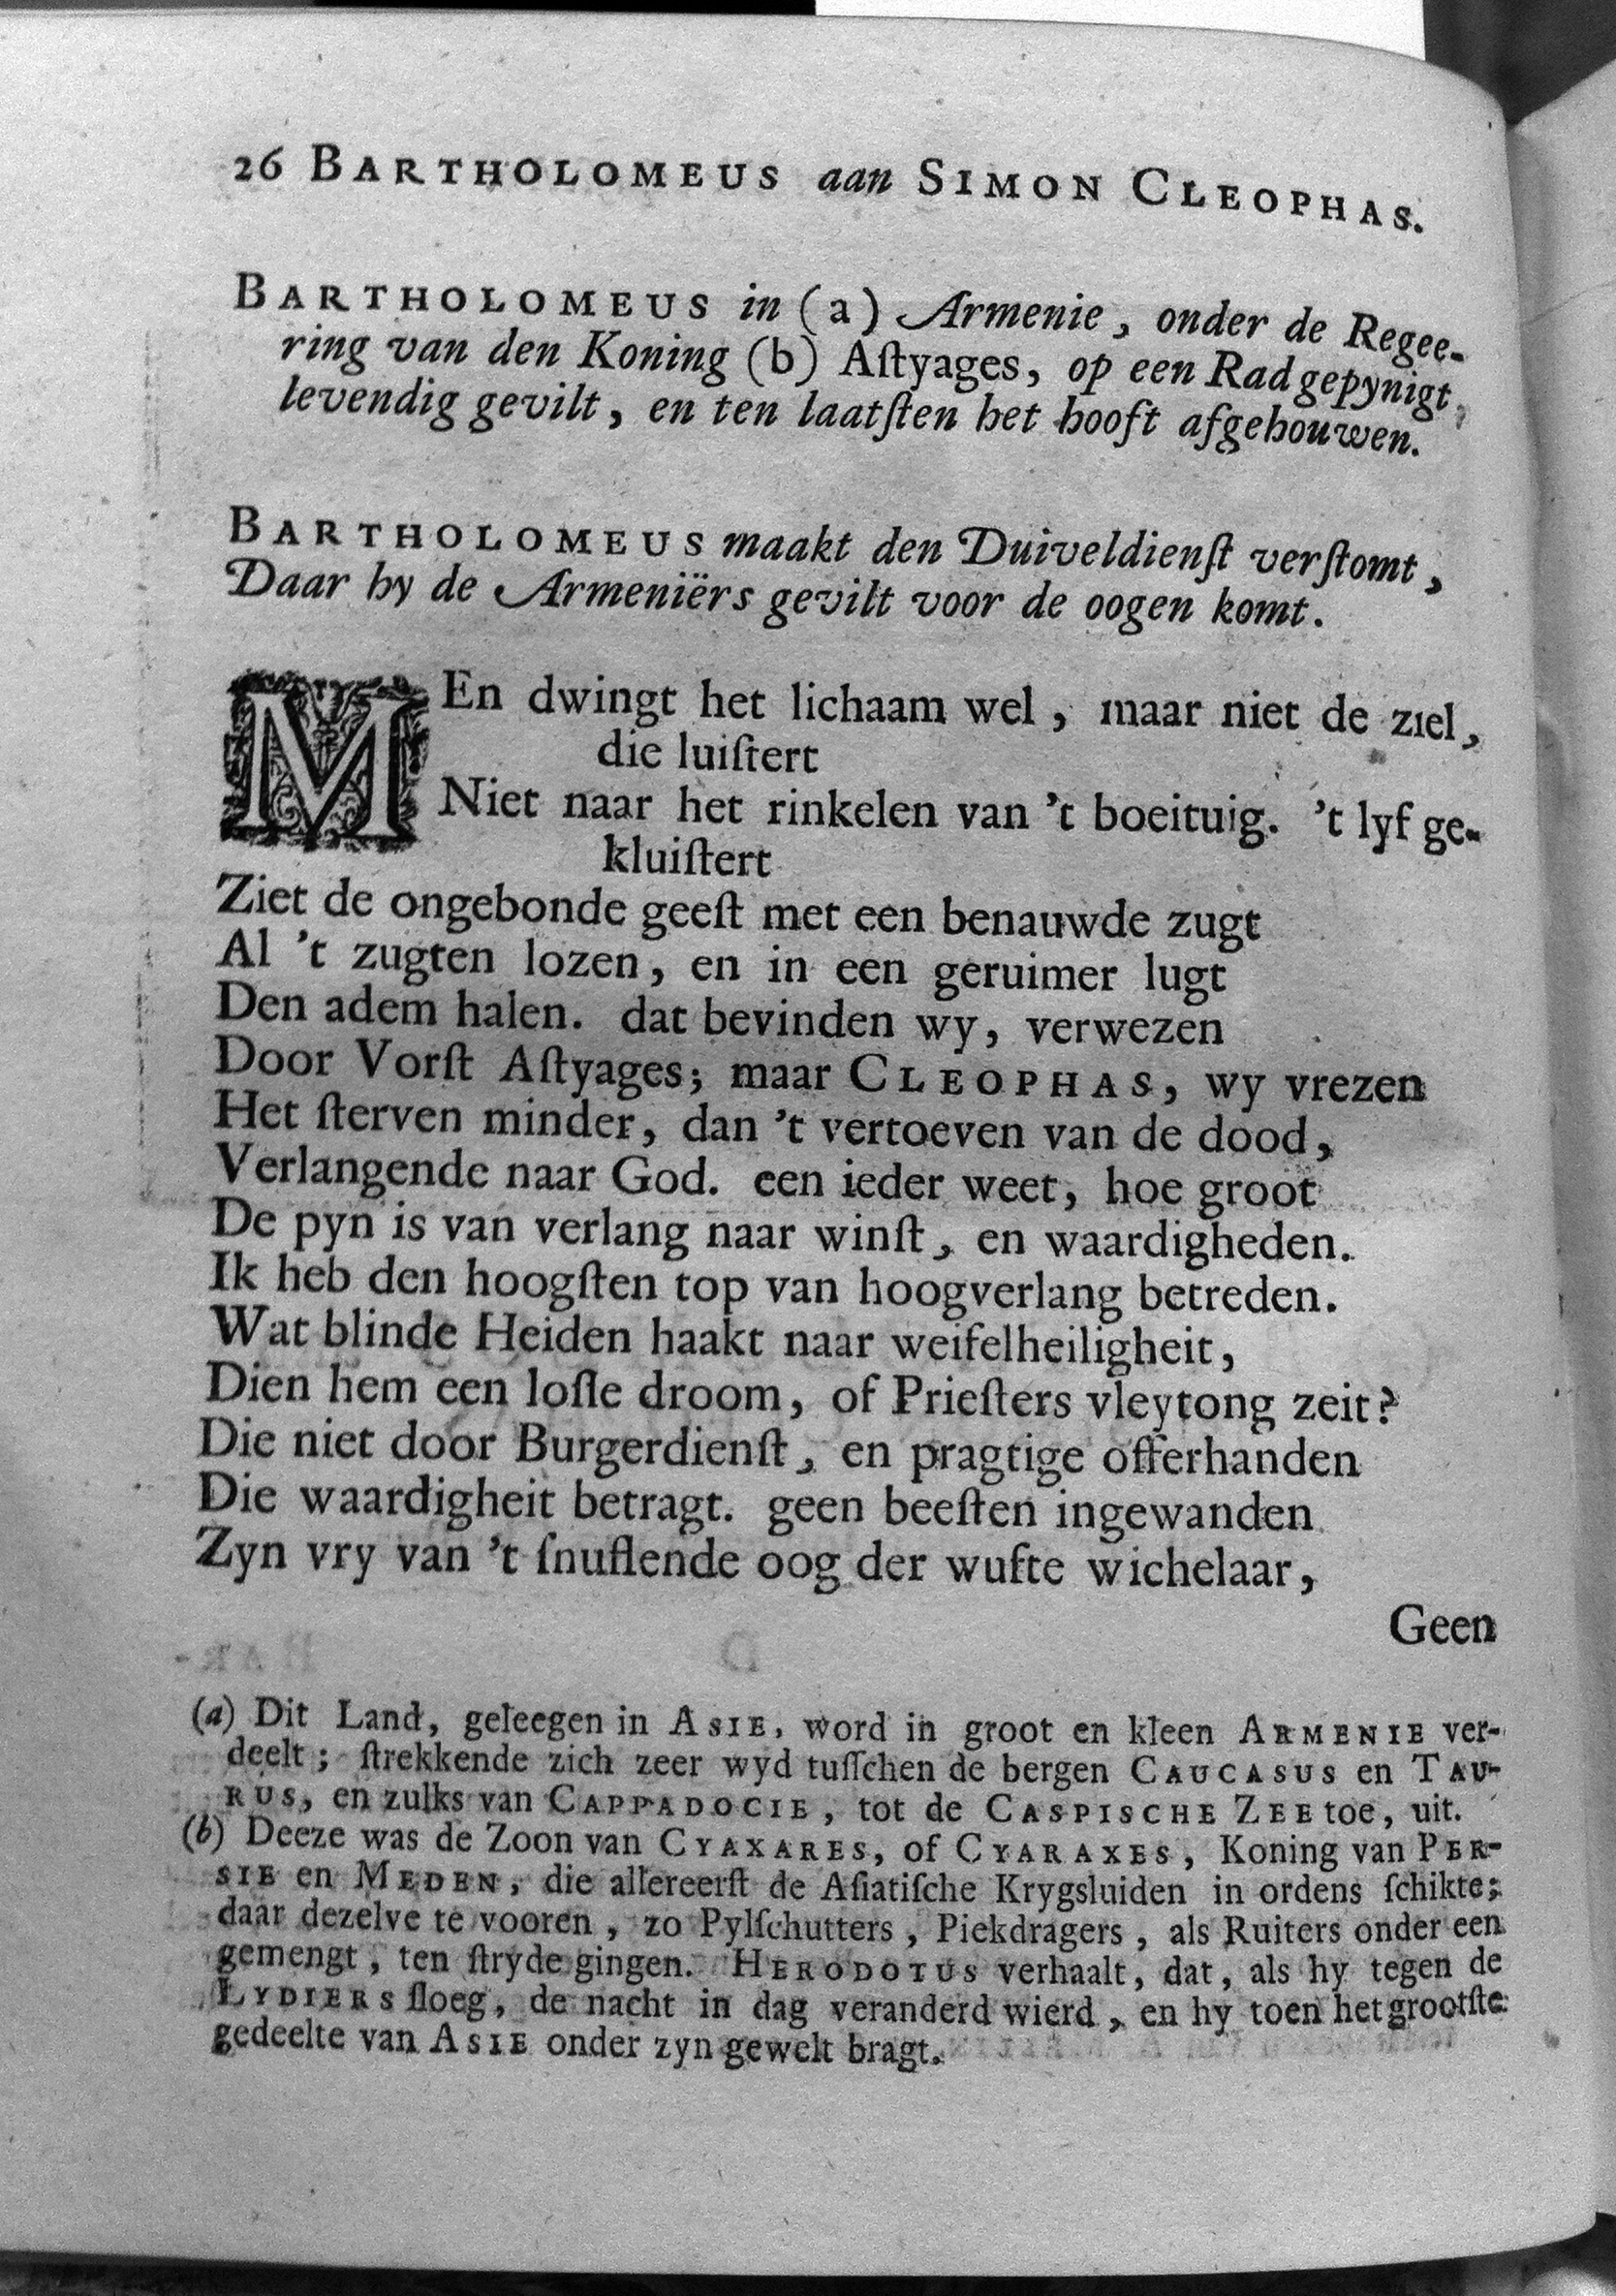 26 BARTHOLOMEUS aan SIMON CLEOPHAS.
BARTHOLOMEUS in (a) Armenie, onder de Regee-
ring van den Koning (b) Aſtyages, op een Rad gepynigt,
levendig gevilt, en ten laatſten het hooft afgehouwen.
BARTHOLOMEUS maakt den Duiveldienſt verſtomt,
Daar hy de Armeniërs gevilt voor de oogen komt.
MEn dwingt het lichaam wel, maar niet de ziel,
die luiſtert
Niet naar het rinkelen van 't boeituig. 't lyf ge-
kluiſtert
Ziet de ongebonde geeſt met een benauwde zugt
Al 't zugten lozen, en in een geruimer lugt
Den adem halen. dat bevinden wy, verwezen
Door Vorſt Aſtyages; maar CLEOPHAS, wy vrezen
Het ſterven minder, dan 't vertoeven van de dood,
Verlangende naar God. een ieder weet, hoe groot
De pyn is van verlang naar winſt, en waardigheden.
Ik heb den hoogſten top van hoogverlang betreden.
Wat blinde Heiden haakt naar weifelheiligheit,
Dien hem een loſſe droom, of Prieſters vleytong zeit?
Die niet door Burgerdienſt, en pragtige offerhanden
Die waardigheit betragt. geen beeſten ingewanden
Zyn vry van 't ſnuflende oog der wufte wichelaar,
Geen
(a) Dit Land, geleegen in ASIE, word in groot en kleen ARMENIE ver-
deelt; ſtrekkende zich zeer wyd tuſſchen de bergen CAUCASUS en TAU-
RUS, en zulks van CAPPADOCIE, tot de CASPISCHE ZEE toe, uit.
(b) Deeze was de Zoon van CYAXARES, of CYARAXES, Koning van PER-
SIE en MEDEN, die allereerſt de Aſiatiſche Krygsluiden in ordens ſchikte;
daar dezelve te vooren, zo Pylſchutters, Piekdragers, als Ruiters onder een
gemengt, ten ſtryde gingen. HERODOTUS verhaalt, dat, als hy tegen de
LYDIERS ſloeg, de nacht in dag veranderd wierd, en hy toen het grootſte
gedeelte van ASIE onder zyn gewelt bragt.